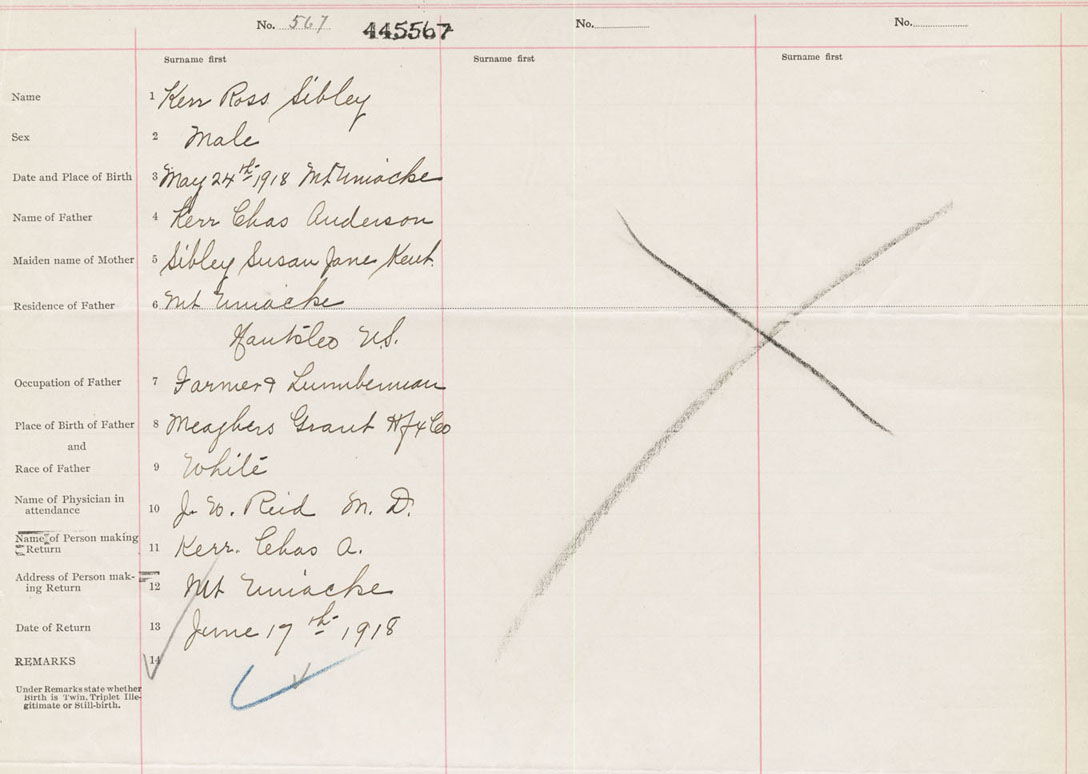 No. 567 445567 No. No.
Surname first Surname first Surname first
Name 1 Kerr Ross Sibley
Sex 2 Male
Date and Place of Birth 3 May 24th 1918 Mt Uniacke
Name of Father 4 Kerr Chas Anderson
Maiden name of Mother 5 Sibley Susan Jane Kent
Residence of Father 6 Mt Uniacke
Hants Co N.S.
Occupation of Father 7 Farmer & Lumberman
Place of Birth of Father 8 Meaghers Grant Hfx Co
and
Race of Father 9 White
Name of Physician in
attendance 10 J. W. Reid M. D.
Name of Person making
Return 11 Kerr. Chas A.
Address of Person mak-
ing Return 12 Mt Uniacke
Date of Return 13 June 17th 1918
REMARKS 14
Under Remarks state whether
Birth is Twin, Triplet Ille-
gitimate or Still-birth.